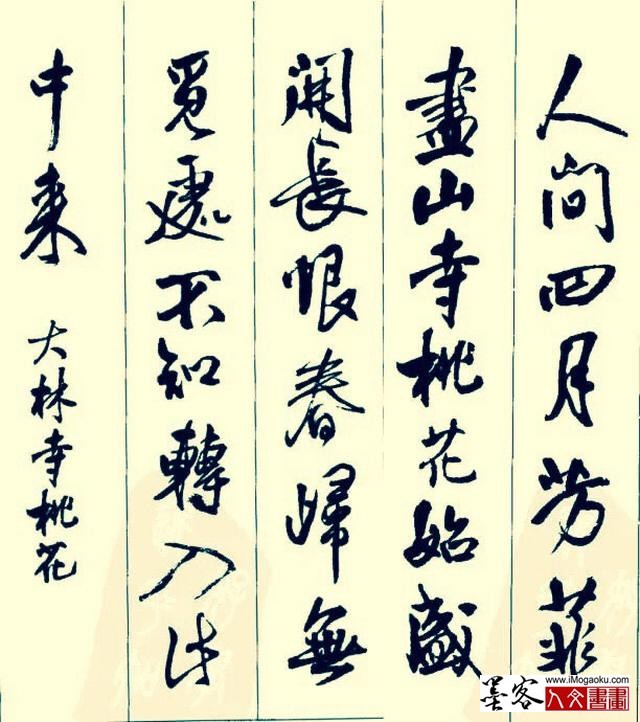 人间四月芳菲
盡山寺桃花始盛
開長恨春歸無
覓處不知轉入此
中来
大林寺桃花
墨客
www.iMogaoku.com
人文書畫